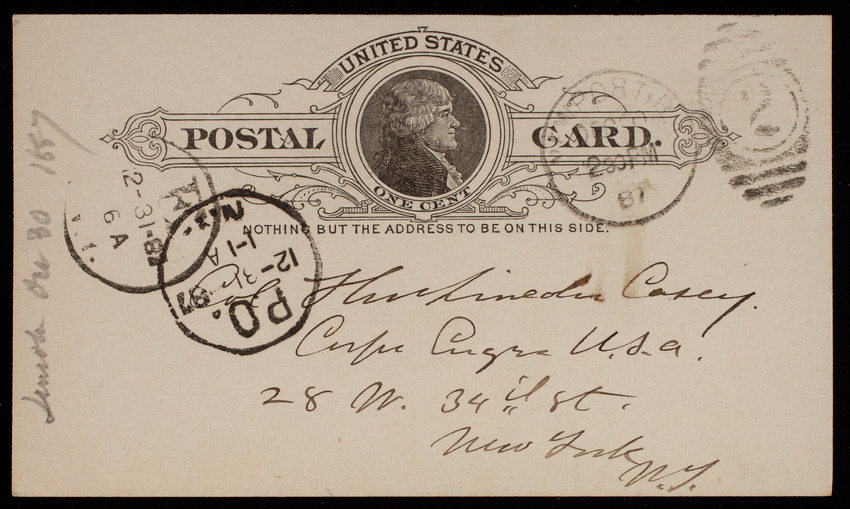 UNITED STATES
POSTAL CARD.
ONE CENT
NOTHING BUT THE ADDRESS TO BE ON THIS SIDE.
NEWPORT R.I.
DEC 30
230PM
87
2
12-31-87
6A
N.Y.
P.O.
12-31
87
1-1A
N.Y.
Col Thos Lincoln Casey.
Corps Engrs U.S.A.
28 W. 34th St.
New York
N.Y.
Dec 30 1887